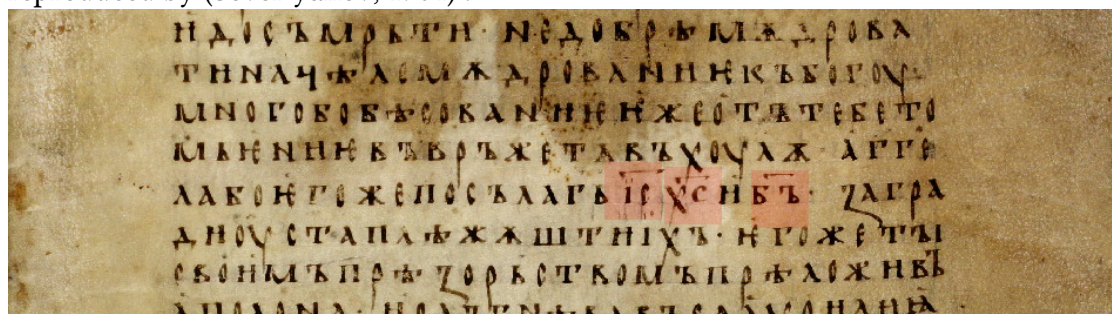 идосъмрьти· недобрѣмѫдрова
тинацѣломѫдрованиѥкъбогоу·
многобобѣсованиѥѥжеотътебето
мьнѥниѥвъвръжетъвъхоулѫ· агге
лабоѥгожепосълагъі҃сх҃сиб҃ъ· ꙁагра
диоустаплѣжѫштиіхъ· ѥгожеты
своимъпрѣꙁорьствомъпрѣложивъ